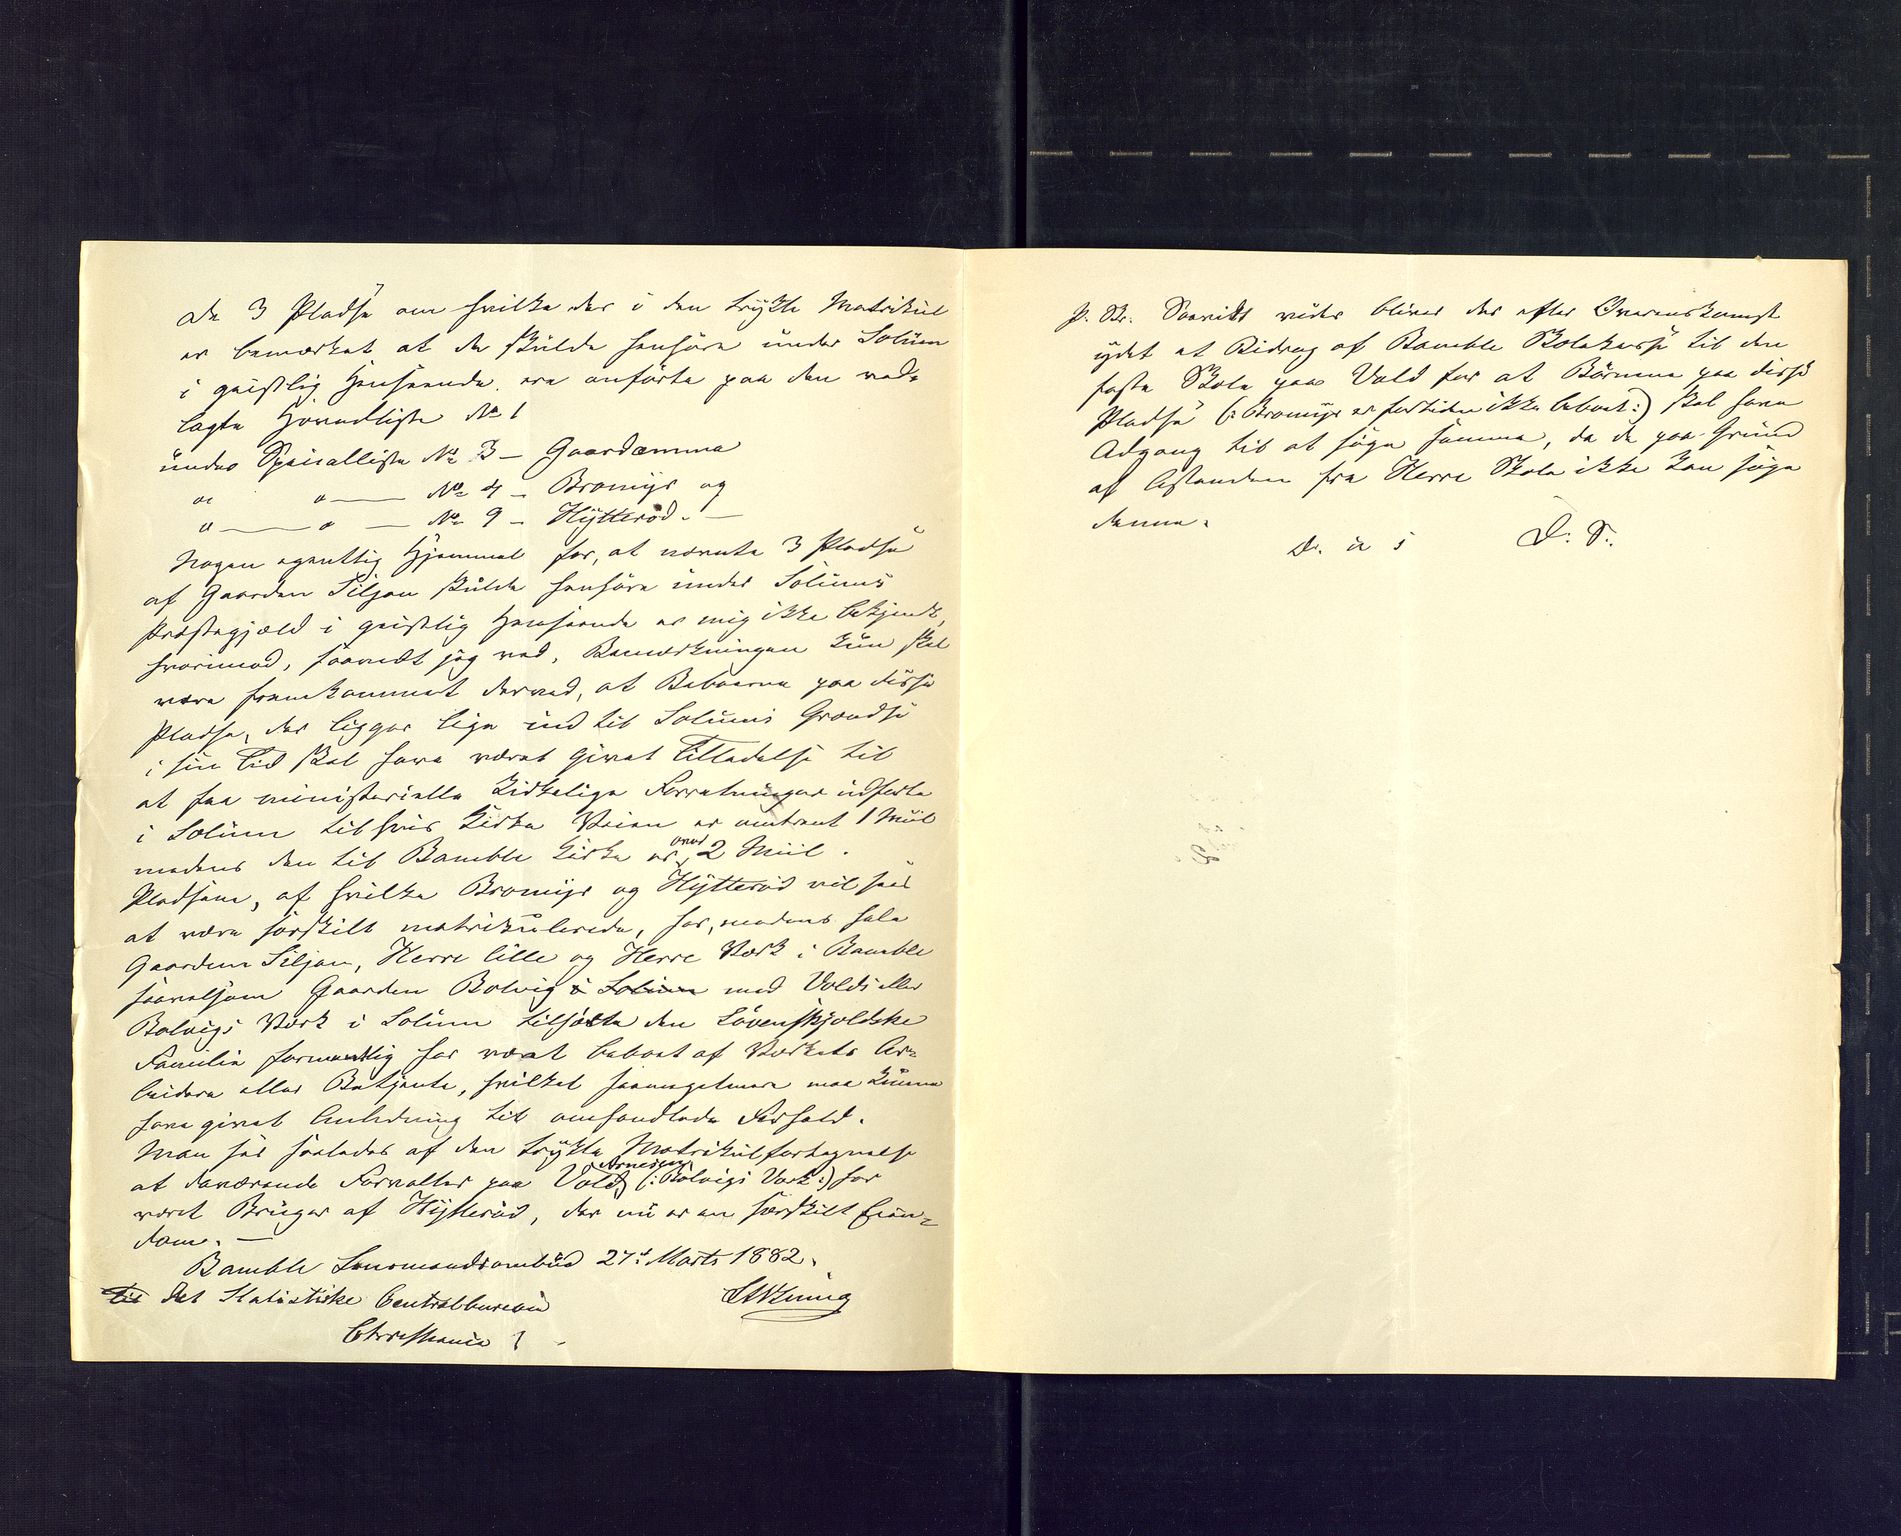 De 3 Pladse om hvilke der i den trykte Matrikul
er bemærket at de skulde henhøre under Solum
i geistlig Henseende, ere anførte paa den ved-
lagte Hovedliste No 1
under Specialliste No 3 – Gaardemma
" " — No 4 – Bromyr og
" — " — No 9 – Hytterød. —
Nogen egentlig Hjemmel for, at nævnte 3 Pladse
af Gaarden Siljan skulde henhøre under Solums
Præstegjæld i geistlig Henseende er mig ikke bekjendt,
hvorimod, saavidt jeg ved, Bemærkningen kun skal
være fremkommet derved, at Beboerne paa disse
Pladse, der ligger lige ind til Solums Grændse
i sin Tid skal have været givet Tilladelse til
at faa ministerielle kirkelige Forretninger udførte
i Solum til hvis Kirke Veien er omtrent 1 Miil
medens den til Bamble Kirke er over 2 Miil.
Pladsene, af hvilke Bromyr og Hytterød vil sees
at være særskilt matrikulerede, har, medens hele
Gaarden Siljan, Herre lille og Herre Værk i Bamble
saavelsom Gaarden Bolvig i Solum med Volds eller
Bolvigs Værk i Solum tilhørte den Løvenskjoldske
Familie formentlig har været beboet af Værkets Ar-
beidere eller Betjente, hvilket saameget mere maa kunne
have givet Anledning til omhandlede Forhold.
Man ser saaledes af den trykte Matrikul fortegnelse
at daværende Forvalter paa Vold Arnesen (: Bolvigs Værk :) har
været Bruger af Hytterød, der nu er en særskilt Eien-
dom. —
Bamble Lensmandsombud 27d Marts 1882.
Til Det Statistiske Centralbureau
Christiania
P. Sc. Saavidt vides bliver der efter Overenskomst
ydet et Bidrag af Bamble Skolekasse til den
faste Skole paa Vold for at Børnene paa disse
Pladse (: Bromyr er fortiden ikke beboet :) skal have
Adgang til at søge samme, da de paa Grund
af Afstanden fra Herre Skole ikke kan søge
denne.
D. u s D. S.